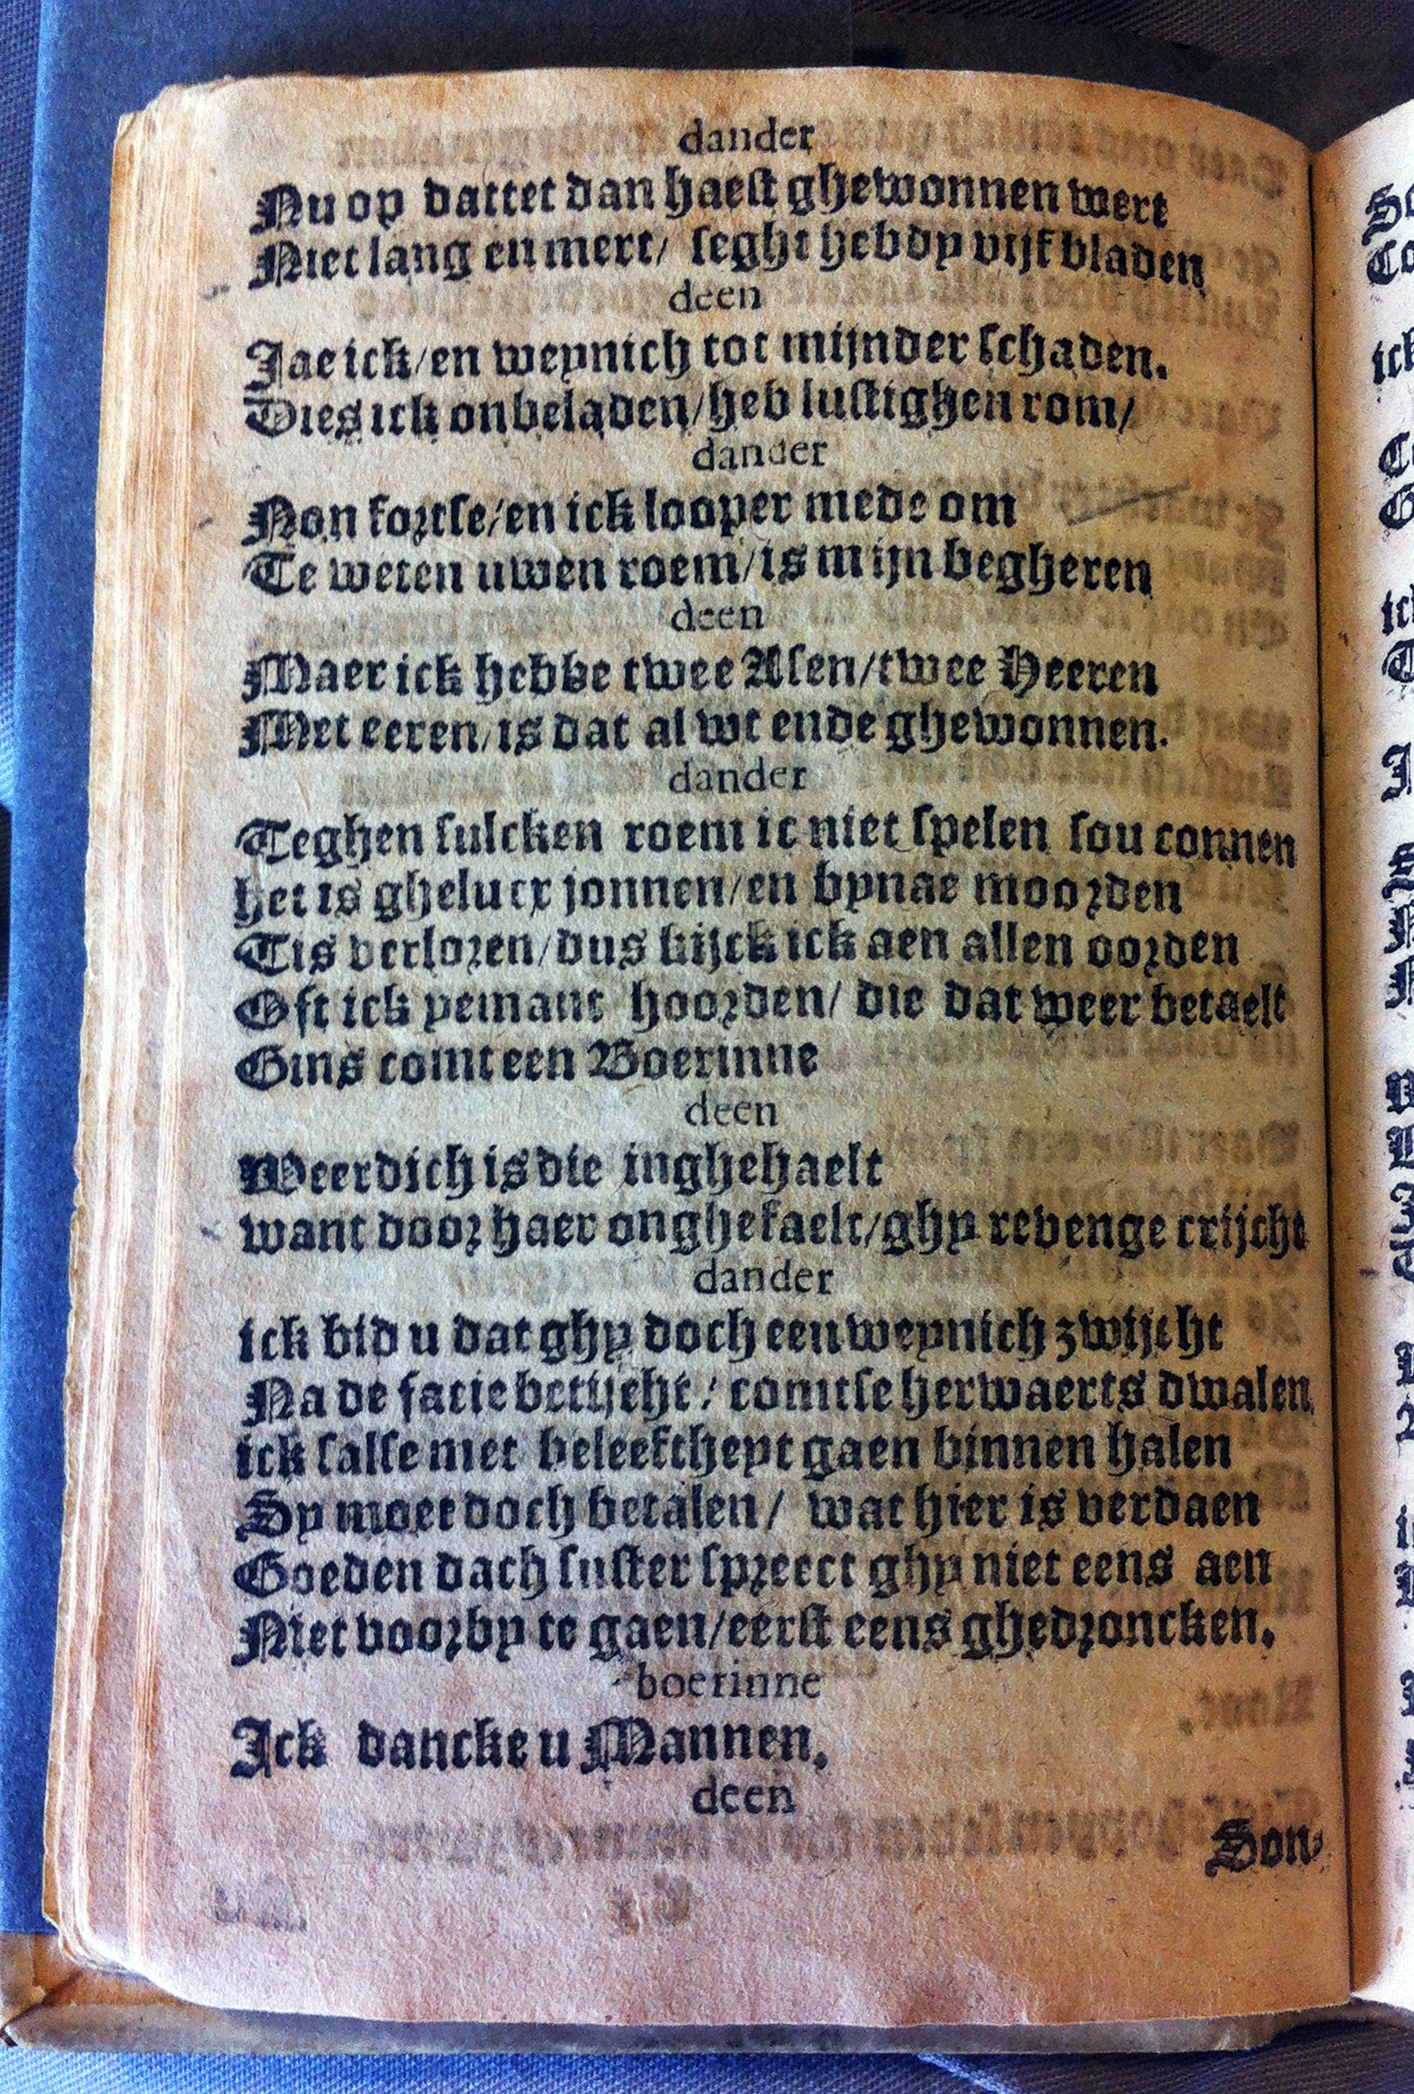 dander
Nu op dattet dan haest ghewonnen wert
Niet lang en mert/ seght hebdy vijf bladen
deen
Jae ick/en weynich tot mijnder schaden.
Dies ick onbeladen/heb lustighen rom/
dander
Non fortse/en ick looper mede om
Te weten uwen roem/is mijn begheren
deen
Maer ick hebbe twee Asen/twee Heeren
Met eeren/is dat al wt ende ghewonnen.
dander
Teghen sulcken roem ic niet spelen sou connen
het is ghelucx jonnen/en bynae moorden
Tis verloren/dus kijck ick aen allen oorden
Oft ick yemant hoorden/ die dat weer betaelt
Gins comt een Boerinne
deen
Weerdich is die inghehaelt
want door haer onghefaelt/ghy revenge crijcht
dander
ick bid u dat ghy doch een weynich zwijcht
Na de facie betijcht/ comtse herwaerts dwalen,
ick salse met beleeftheyt gaen binnen halen
Sy moet doch betalen/ wat hier is verdaen
Goeden dach suster spreect ghy niet eens aen
Niet voorby te gaen/eerst eens ghedroncken.
boerinne
Ick dancke u Mannen.
deen
Son-